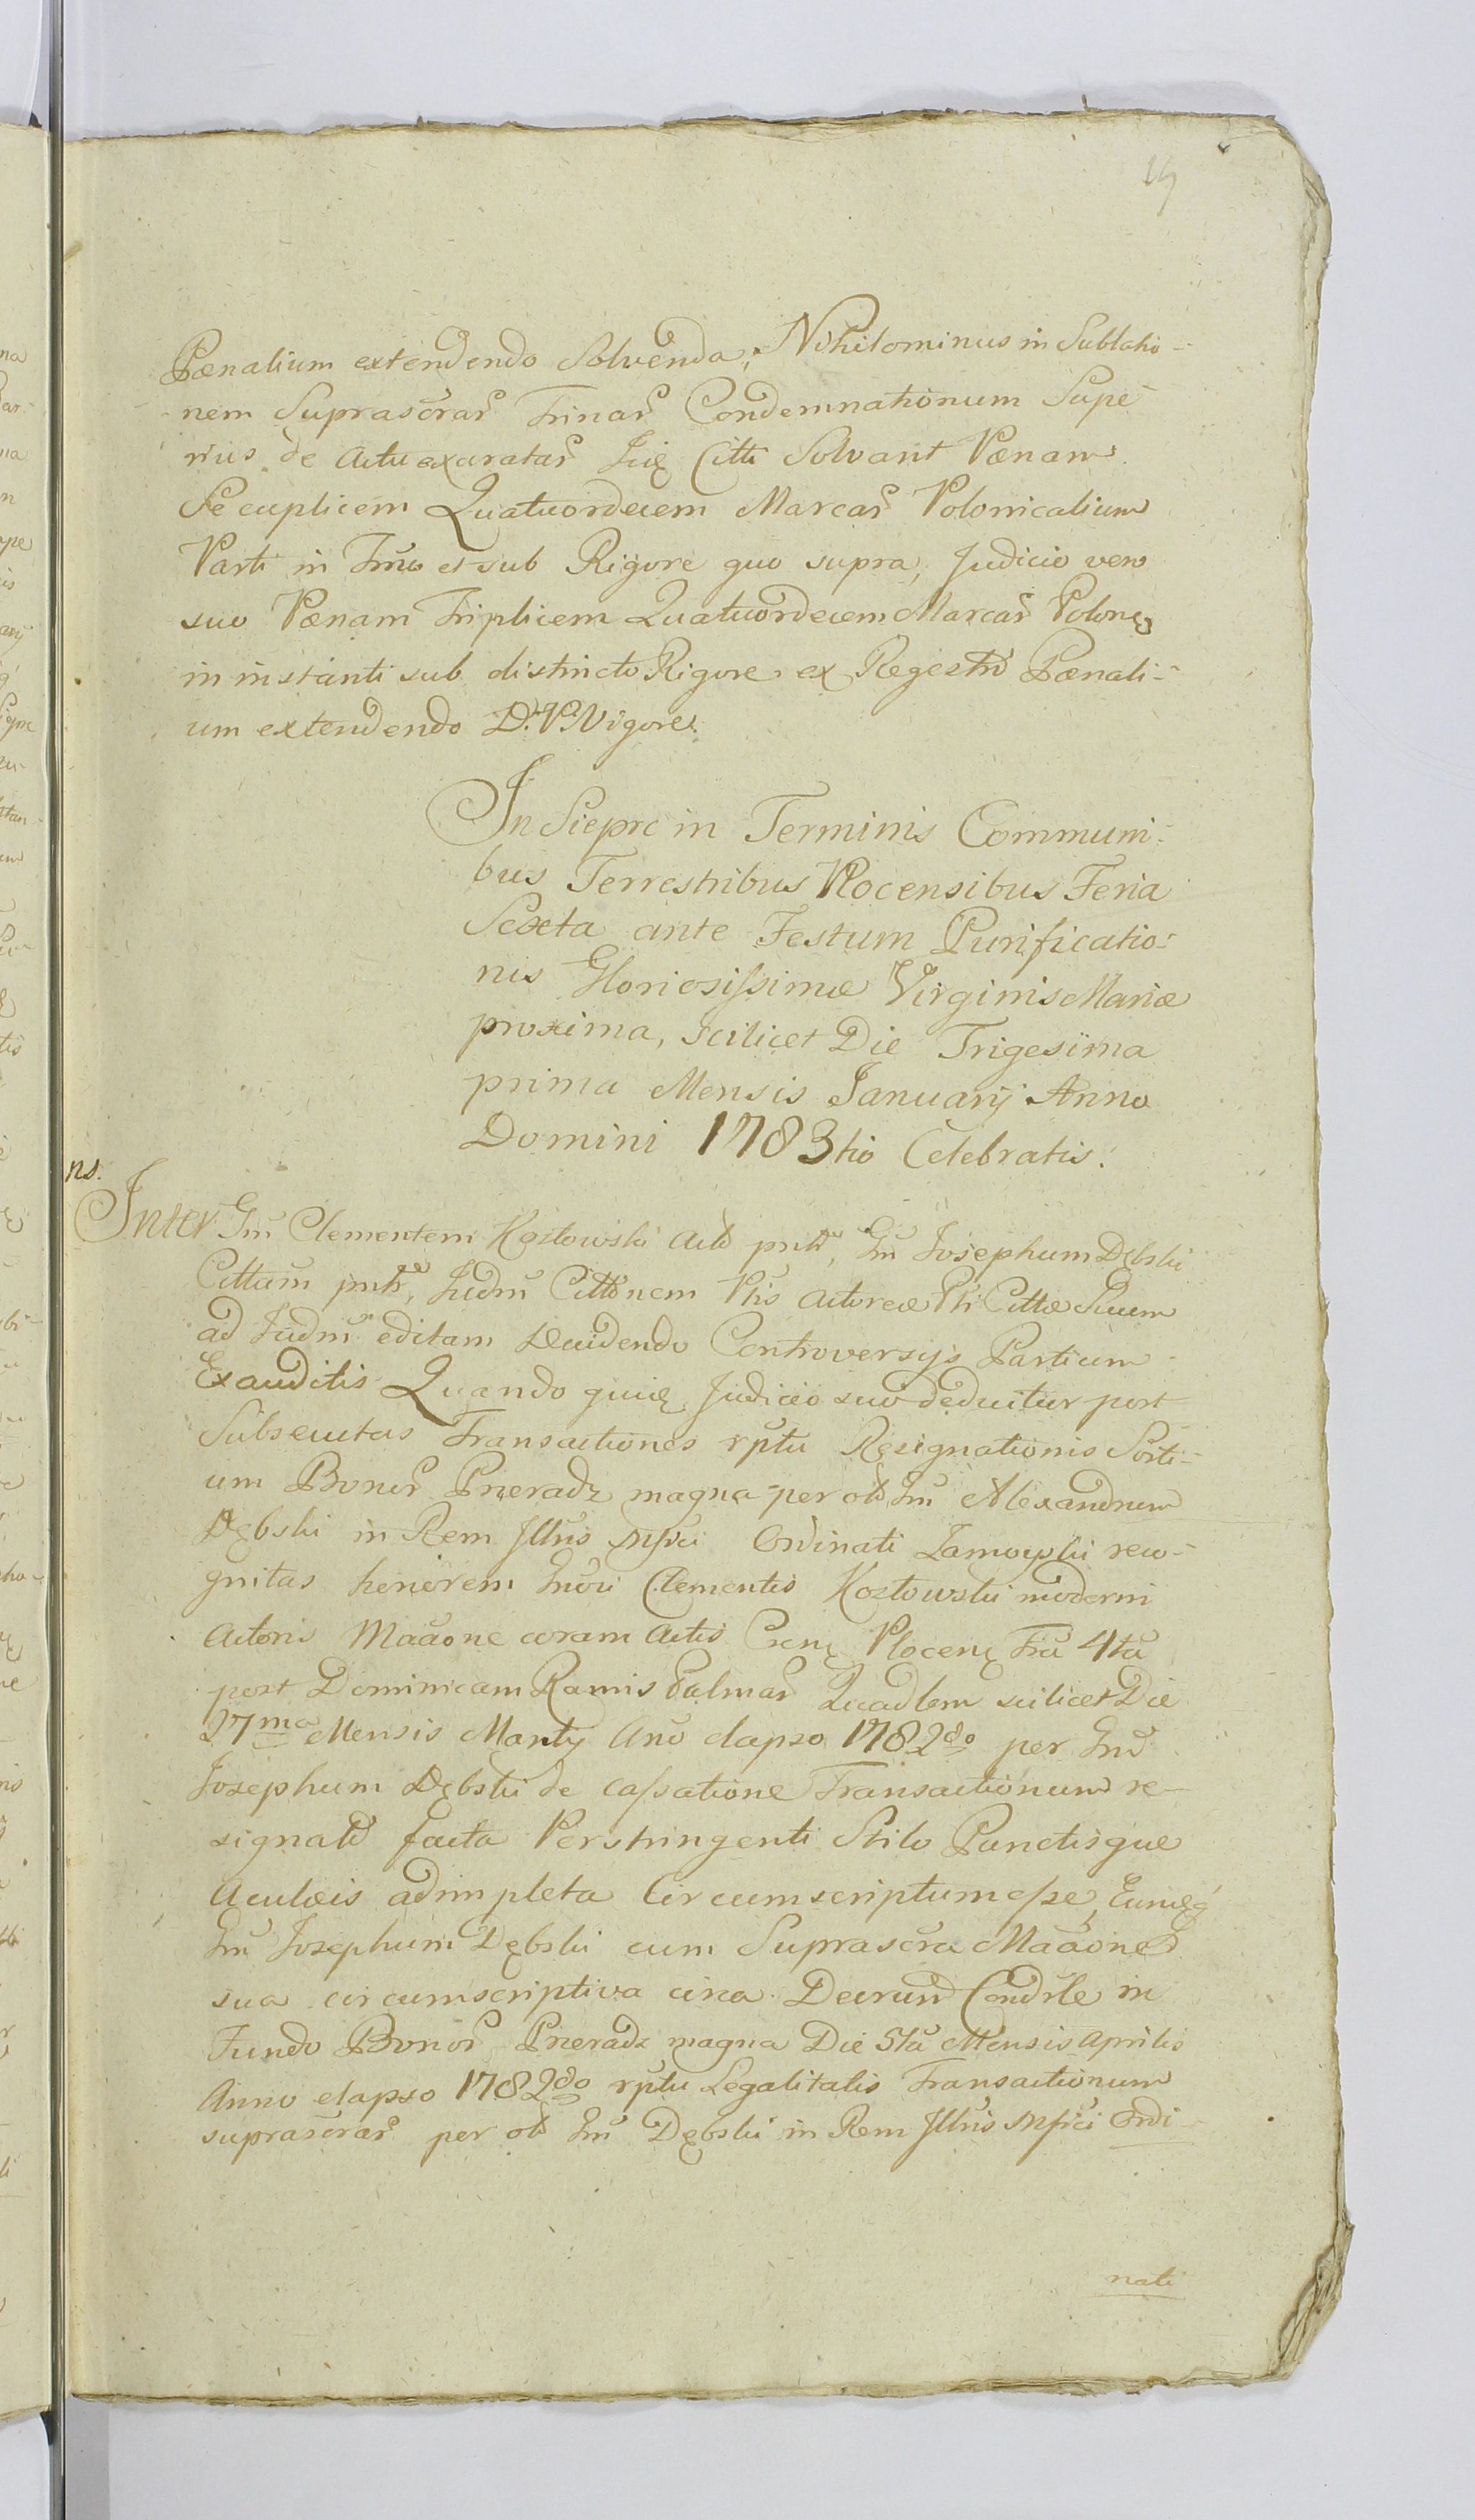 19
Pænalium extendendo Solvenda, Nihilominus in Sublatio-
nem Suprascrar Trinar Condemnationum Supe-
rius de Actu exaratar Jcię Citti Solvant Pænam
Secuplicem Quatuordecem Marcar Polonicalium
Parti in Tmo et sub Rigore quo supra, Judicio vero
suo Pænam Triplicem Quatuordecem Marcar Polonę
in instanti sub districto Rigore ex Regestro Pænali-
um extendendo D. P. Vigore.
In Sieprc in Terminis Communi-
bus Terrestribus Plocensibus Feria
Sexta ante Festum Purificatio-
nis Gloriosissimæ Virginis Mariæ
proxima, scilicet Die Trigesima
prima Mensis Januarij Anno
Domini 1783tio Celebratis.
ns.
Inter Gm Clementem Kozłowski Actò pntò, Gm Josephum Dębski
Cittum pntò, Judm Cittonem Ptis Actoreæ Pti Cittæ Suum
ad Judm editam Decidendo Controversijs Partium
Exauditis Quando quię Judicio suo deducitur post
Subsecutas Transactiones rptu Resignationis Sorti-
um Bonor Pneradz magna per olò Gm Alexandrum
Dębski in Rem Jllris Mfici Ordinati Zamoyski reco-
gnitas henorem Gnosi Clementis Kozłowski moderni
Actoris Maãone coram Actis Crenę Plocenę Fria 4ta
post Dominicam Ramis Palmar Quadlem scilicet Die
27ma Mensis Martij Ano elapso 1782do per Gm
Josephum Dębski de cassatione Transactionum re-
signatò facta Perstringenti Stilo Punctisque
Aculeis adimpleta Circumscriptum esse, Eumęq
Gm Josephum Dębski cum Suprascra Maãone
sua circumscriptiva circa Decrum Condsle in
Fundo Bonor Pneradz magna Die 5ta Mensis Aprilis
Anno elapso 1782do rptu Legalitatis Transactionum
suprascrar per olò Gm Dębski in Rem Jllris Mfici Ordi-
nati